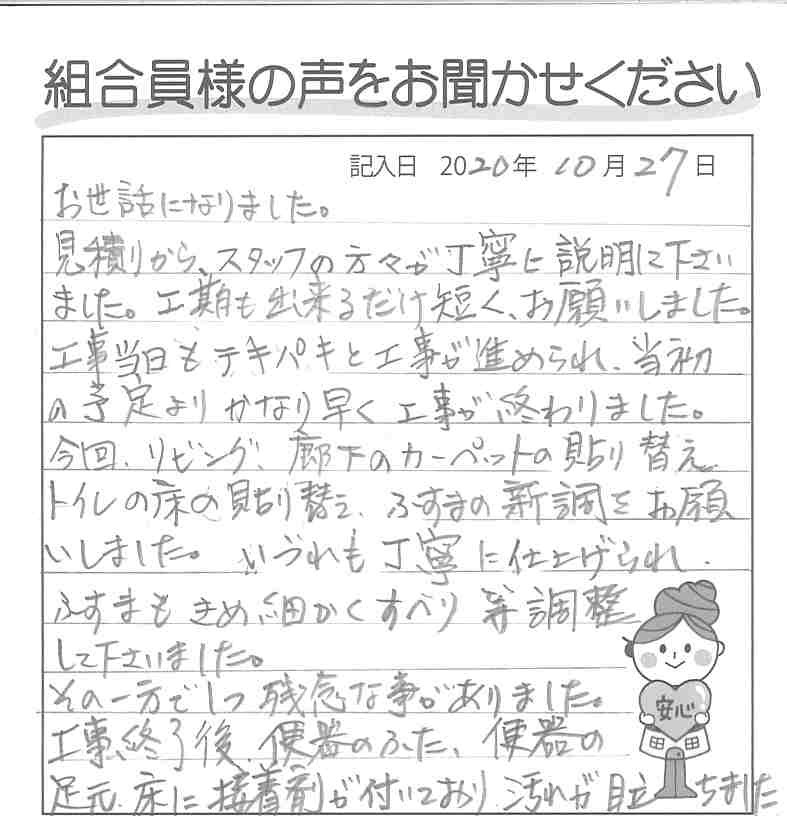 組合員様の声をお聞かせください
記入日 2020年 10月27日
お世話になりました。
見積りから、スタッフの方々が丁寧に説明に下さい
ました。工期も出来るだけ短く、お願いしました。
工事当日もテキパキと工事が進められ、当初
の予定よりかなり早く工事が終わりました。
今回、リビング、廊下のカーペットの貼り替え、
トイレの床の貼り替え、ふすまの新調をお願
いしました。いづれも丁寧に仕上げられ、
ふすまもきめ細かくすべり等調整
して下さいました。
その一方で1つ残念な事がありました。
工事終了後、便器のふた、便器の
足元、床に接着剤が付いており、汚れが目立ちました
安心